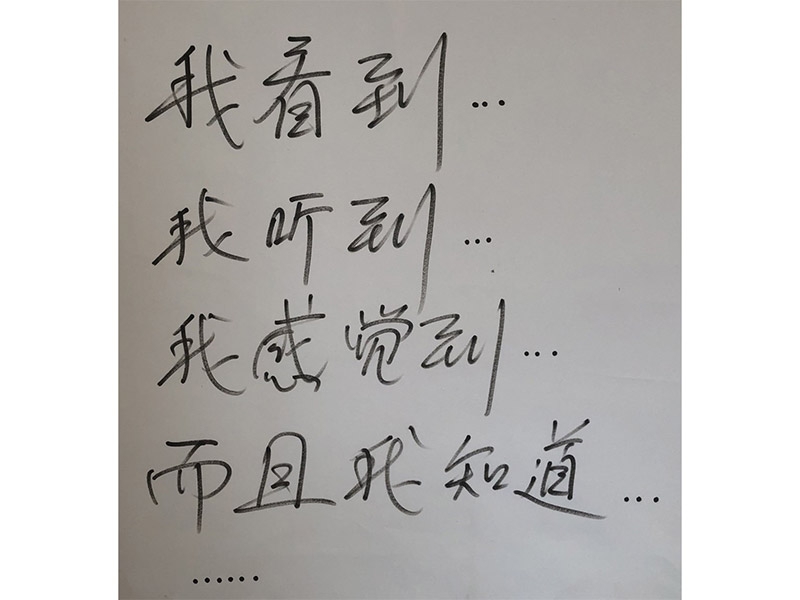 我看到...
我听到...
我感觉到...
而且我知道...
......